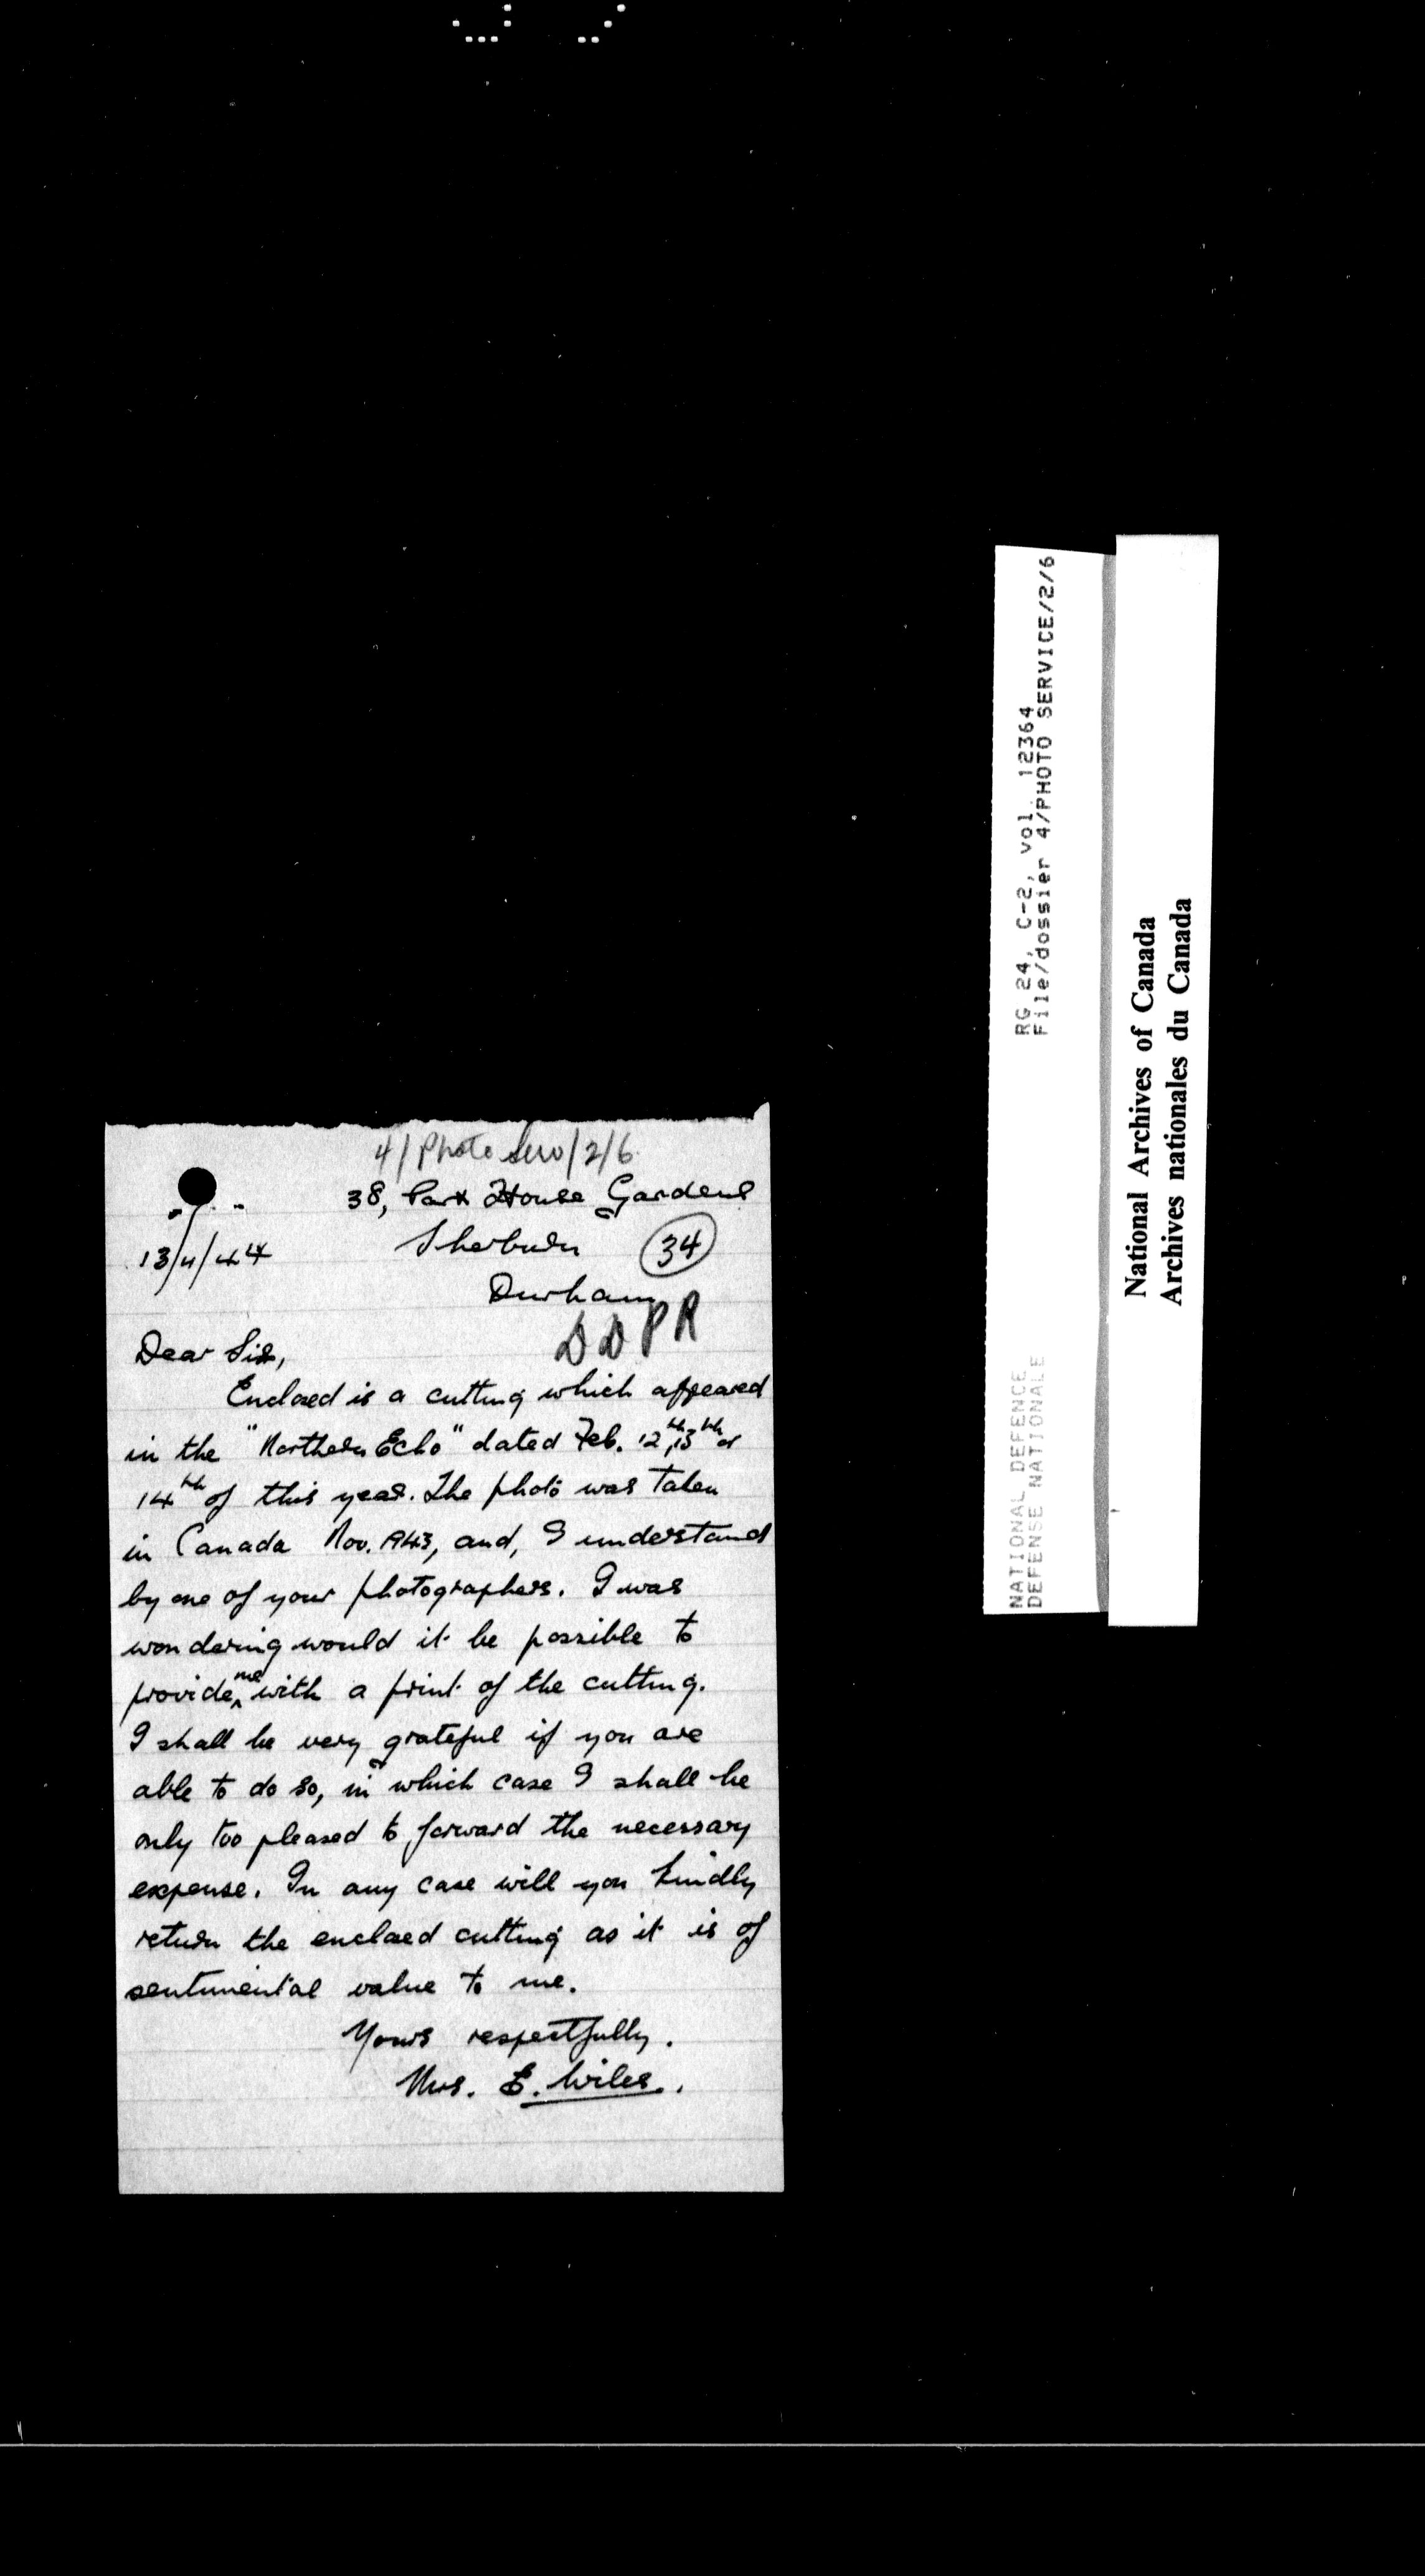 4/Photo Serv/2/6
38, Park House Gardens
13/4/44 Sherburn 34
Durham
DDPR
Dear Sir,
Enclosed is a cutting which appeared
in the "Northern Echo" dated Feb. 12th, 13th or
14th of this year. The photo was taken
in Canada Nov. 1943, and, I understand
by one of your photographers. I was
wondering would it be possible to
provide me with a print of the cutting.
I shall be very grateful if you are
able to do so, in which case I shall be
only too pleased to forward the necessary
expense. In any case will you kindly
return the enclosed cutting as it is of
sentimental value to me.
Yours respectfully.
Mrs. E. Wiles.
RG 24, C-2, vol. 12364
File/dossier 4/PHOTO SERVICE/2/6
NATIONAL DEFENCE
DEFENSE NATIONALE
National Archives of Canada
Archives nationales du Canada